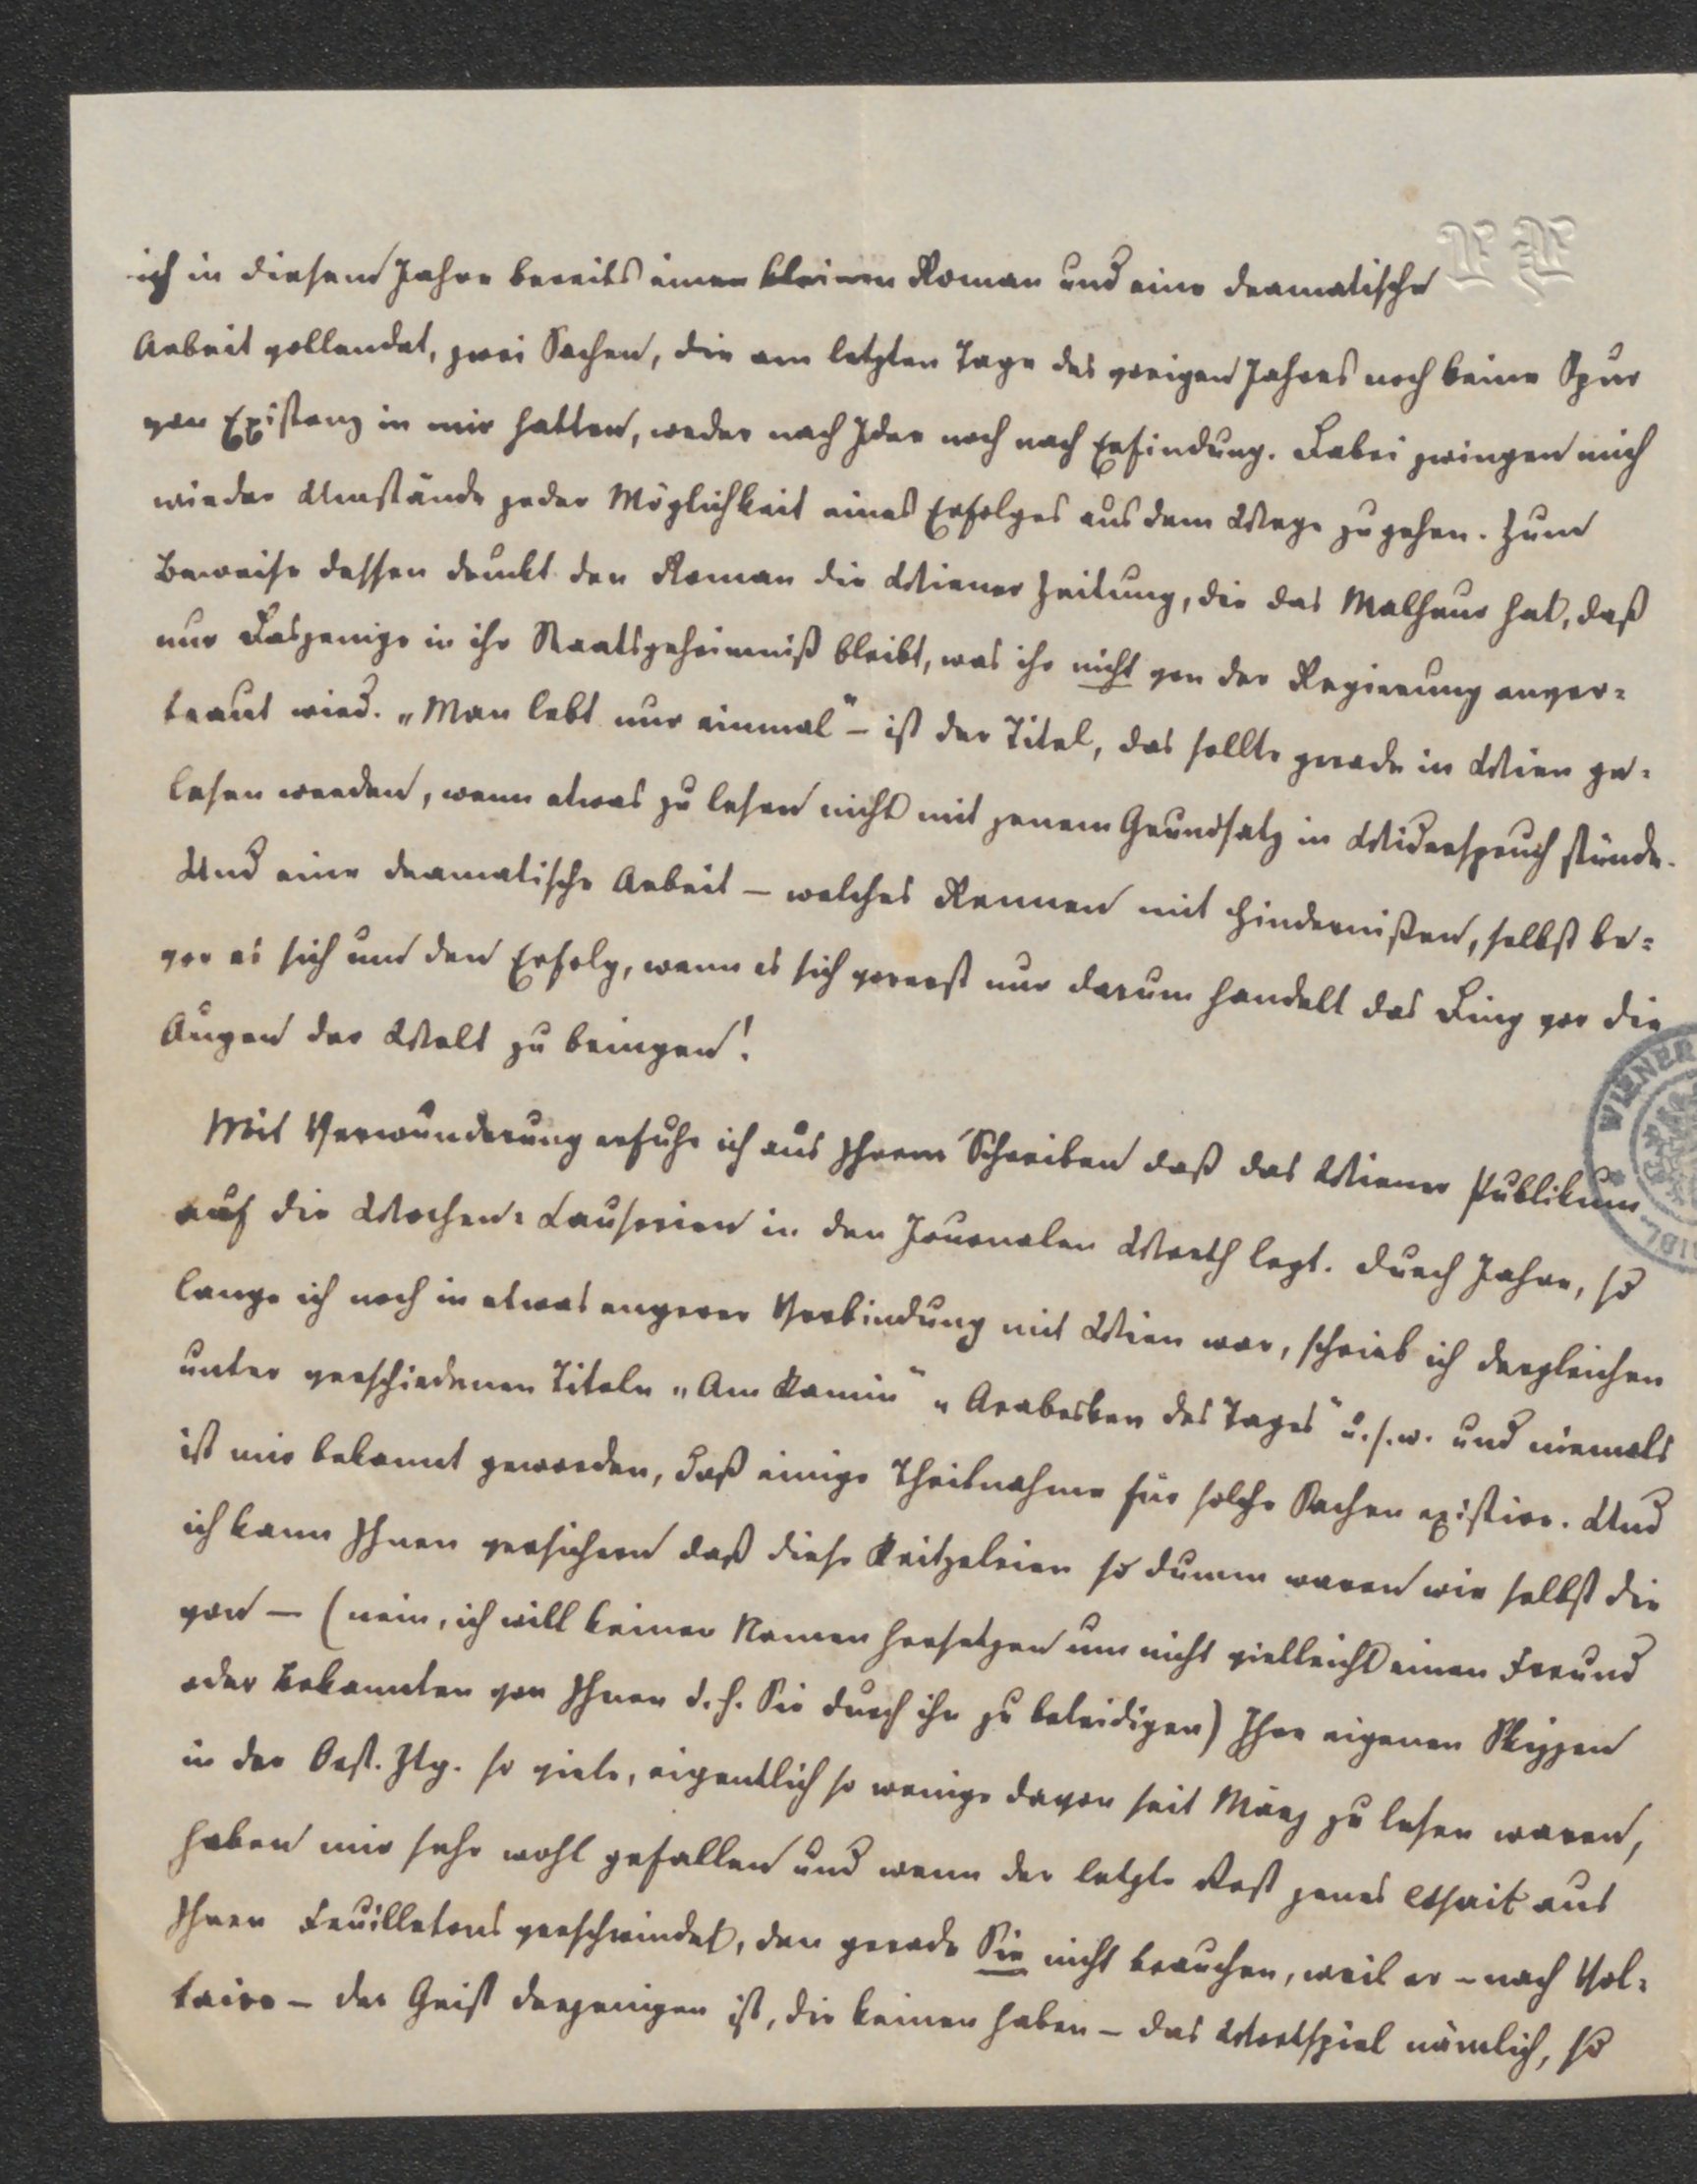 ich in diesem Jahre bereits einen kleinen Roman und eine dramatische
Arbeit vollendet, zwei Sachen, die am letzten Tage des vorigen Jahres noch keine Spur
von Existenz in mir hatten, weder nach Idee noch nach Erfindung. Dabei zwingen mich
wieder Umstände jeder Möglichkeit eines Erfolges aus dem Wege zu gehen. Zum
Beweise dessen druckt den Roman die Wiener Zeitung, die das Malheur hat, daß
nur Dasjenige in ihr Staatsgeheimniß bleibt, was ihr nicht von der Regierung anver=
traut wird. „Man lebt nur einmal" – ist der Titel, das sollte gerade in Wien ge=
lesen werden, wenn etwas zu lesen nicht mit jenem Grundsatz in Widerspruch stünde.
Und eine dramatische Arbeit – welches Rennen mit Hindernißen, selbst be=
vor es sich um den Erfolg, wenn es sich vorerst nur darum handelt das Ding vor die
Augen der Welt zu bringen!
Mit Verwunderung erfuhr ich aus Ihrem Schreiben daß das Wiener Publikum
auf die Wochen=Causerien in den Journalen Werth legt. Durch Jahre, so
lange ich noch in etwas engerer Verbindung mit Wien war, schrieb ich dergleichen
unter verschiedenen Titeln „Am Kamin" „Arabesken des Tages" u.s.w. und niemals
ist mir bekannt geworden, daß einige Theilnahme für solche Sachen existire. Und
ich kann Ihnen versichern daß diese Kritzeleien so dumm waren wie selbst die
von – (nein, ich will keinen Namen hersetzen um nicht vielleicht einen Freund
oder Bekannten von Ihnen d.h. Sie durch ihn zu beleidigen) Ihre eigenen Skizzen
in der Oest. Ztg. so viele, eigentlich so wenige davon seit März zu lesen waren,
haben mir sehr wohl gefallen und wenn der letzte Rest jenes Esprit aus
Ihren Feuilletons verschwindet, den gerade Sie nicht brauchen, weil er – nach Vol=
taire – der Geist derjenigen ist, die keinen haben – das Wortspiel nämlich, so
WIENER
BIBL